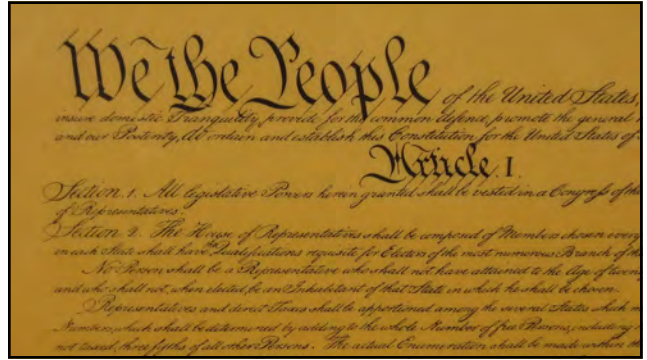 We the People of the United States,
insure domestic Tranquility, provide for the common defence, promote the general
and our Posterity, do ordain and establish this Constitution for the United States of
Article. I.
Section. 1. All legislative Powers herein granted shall be vested in a Congress of the
of Representatives.
Section. 2. The House of Representatives shall be composed of Members chosen every
in each State shall have the Qualifications requisite for Electors of the most numerous Branch of the
No Person shall be a Representative who shall not have attained to the Age of twenty
and who shall not, when elected, be an Inhabitant of that State in which he shall be chosen.
Representatives and direct Taxes shall be apportioned among the several States which
Numbers, which shall be determined by adding to the whole Number of free Persons, including
not taxed, three fifths of all other Persons. The actual Enumeration shall be made within